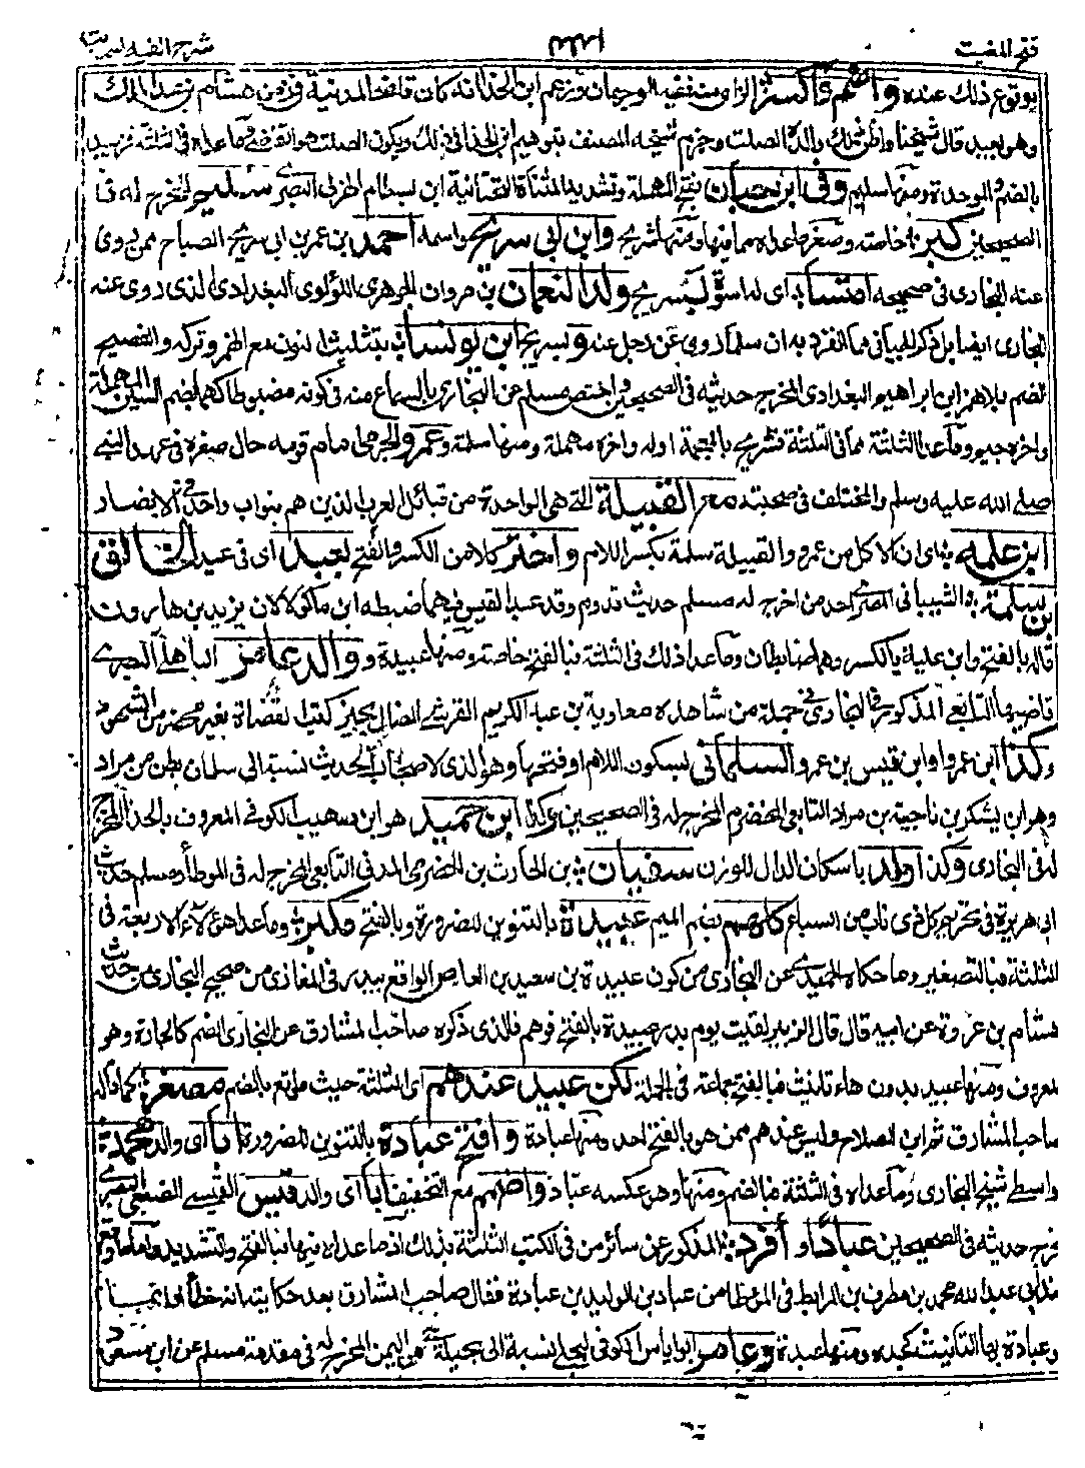 فتح المغيث شرح الفية الحديث
بوقوع ذلك عنده وافتح واكسر الزاي من تقنية الوجهان وزعم ابن الحذاء انه كان قاضي المدينة في زمن هشام بن عبد الملك
وهو بعيد قال شيخنا واظن ذلك والده الصلت وجزم شيخه المصنف بتوهيم ابن الحذاء في ذلك ويكون الصلت هو القاضي وما عداه في الثلثة فزبيد
بالضم والموحدة ومنها سليم وفي ابن حيان بفتح المهملة وتشديد المثناة التحتانية ابن بسطام الهذلي البصري سليم المخرج له في
الصحيحين كبر اي خاصته وصغر ما عداه مما فيها ومنها شريح وابن ابي سريج واسمه احمد بن عمر بن ابي سريج الصباح ممن يروي
عنه البخاري في صحيحه ائتسا به اي له اسوة بسريج ولد النعمان بن مروان الجوهري اللؤلؤي البغدادي الذي روى عنه
البخاري ايضا بل ذكر الجياني مما انفرد به ان مسلما روى عن رجل عنه وسريج ابن يونسا بتثليث النون مع الهمز وتركه والفصيح
الضم بلا همز ابن ابراهيم البغدادي المخرج حديثه في الصحيحين واختص مسلم عن البخاري بالسماع منه في كونه مضبوطا كهما بضم السين المهملة
واخره جيم وما عدا الثلثة مما في الثلثة فشريح بالمعجمة اوله واخره مهملة ومنها سلمة وعمرو الجرمي امام قومه حال صغره في عهد النبي
صلى الله عليه وسلم والمختلف في صحبته مع القبيلة التي هي الواحدة من قبائل العرب الذين هم بنو اب واحد في الانصار
ابن سلمه اي ان كلا من عمرو والقبيلة سلمة بكسر اللام واختر كلا من الكسر والفتح لعبد اي في عبد الخالق
بن سلمة الشيباني المصري احد من اخرج له مسلم حديث قدوم وفد عبد القيس فيهما ضبطه ابن ماكولا لان يزيد بن هارون
قاله بالفتح وابن علية بالكسر وهما ضابطان وما عدا ذلك في الثلثة فبالفتح خاصة ومنها عبيدة و والد عامر الباهلي البصري
قاضيها التابعي المذكور في البخاري في جملة من شاهده معاوية بن عبد الكريم القرشي الضال يجيز كتب القضاة بغير محضر من الشهود
وكذا ابن عمرو او ابن قيس بن عمرو السلماني بسكون اللام او فتحها وهو الذي لاصحاب الحديث نسبة الى سلمان بطن من مراد
وهو ابن يشكر بن ناجية بن مراد التابعي المخضرم المخرج له في الصحيحين وكذا ابن حميد هو ابن صهيب الكوفي المعروف بالحذاء المخرج
له في البخاري وكذا ولد باسكان الدال للوزن سفيان بن الحارث بن الحضرمي المدني التابعي المخرج له في الموطأ ومسلم حديث
ابي هريرة في تحريم كل ذي ناب من السباع كلهم بضم الميم عبيدة بالتنوين للضرورة وبالفتح مكبرة وما عدا هؤلاء الاربعة في
الثلثة فبالتصغير وما حكاه الحميدي عن البخاري من كون عبيدة بن سعيد بن العاص الواقع ببدر في المغازي من صحيح البخاري من حديث
هشام بن عروة عن ابيه قال قال الزبير لقيت يوم بدر عبيدة بالفتح فوهم فالذي ذكره صاحب المشارق عن البخاري الضم كالجادة وهو
المعروف ومنها عبيد بدون هاء تانيث فبالفتح جماعة في الجملة لكن عبيد عندهم اي الثلثة حيث ما وقع بالضم مصغر كما قاله
صاحب المشارق ثم ابن الصلاح وليس عندهم ممن هو بالفتح احد ومنها عبادة وافتح عبادة بالتنوين للضرورة ابا اي والد محمد
الواسطي شيخ البخاري وما عداه في الثلثة فبالضم ومنها وهو عكسه عباد واضمم مع التخفيف ابا اي والد قيس القيسي الضبعي البصري
المخرج حديثه في الصحيحين عبادا وافرد المذكور عن سائر من في الكتب الثلثة بذلك اذ ما عداه فيها فبالفتح والتشديد واما ما وقع
عند ابي عبد الله محمد بن مطرف بن المرابط في الموطا من عباد بن الوليد بن عبادة فقال صاحب المشارق بعد حكايته انه خطأ
وعبادة بهاء التانيث كجده ومنها عبدة وعامر ابو اياس الكوفي البجلي نسبة الى بجيلة من اليمن المخرج له في مقدمة مسلم عن ابن مسعود